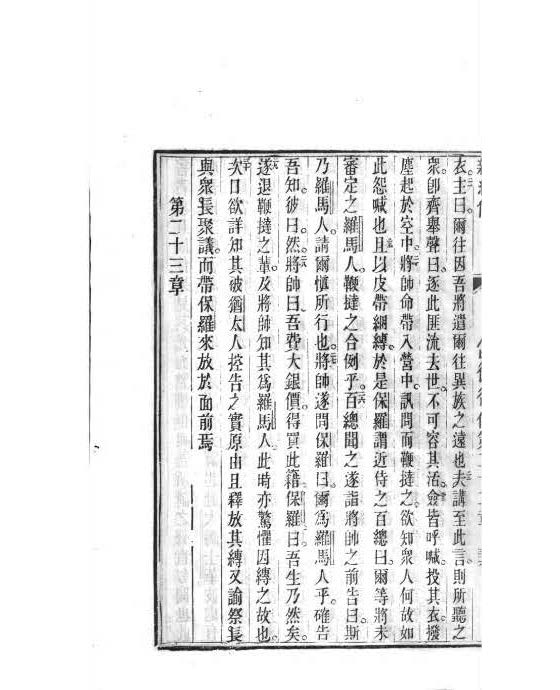 衣主曰爾往因吾將遣爾往異族之遠也夫講至此言則所聽之
衆卽齊舉聲曰逐此匪流去世不可容其活僉皆呼喊投其衣撥
塵起於空中將帥命帶入營中訊問而鞭撻之欲知衆人何故如
此怨喊也且以皮帶綑縛於是保羅謂近侍之百總曰爾等將未
審定之羅馬人鞭撻之合例乎百總聞之遂詣將帥之前告曰斯
乃羅馬人請爾愼所行也將帥遂問保羅曰爾爲羅馬人乎確告
吾知彼曰然將帥曰吾費大銀價得買此籍保羅曰吾生乃然矣
遂退鞭撻之輩及將帥知其爲羅馬人此時亦驚懼因縛之故也
次日欲詳知其被猶太人控告之實原由且釋放其縛又諭祭長
與衆長聚議而帶保羅來放於面前焉
第二十三章